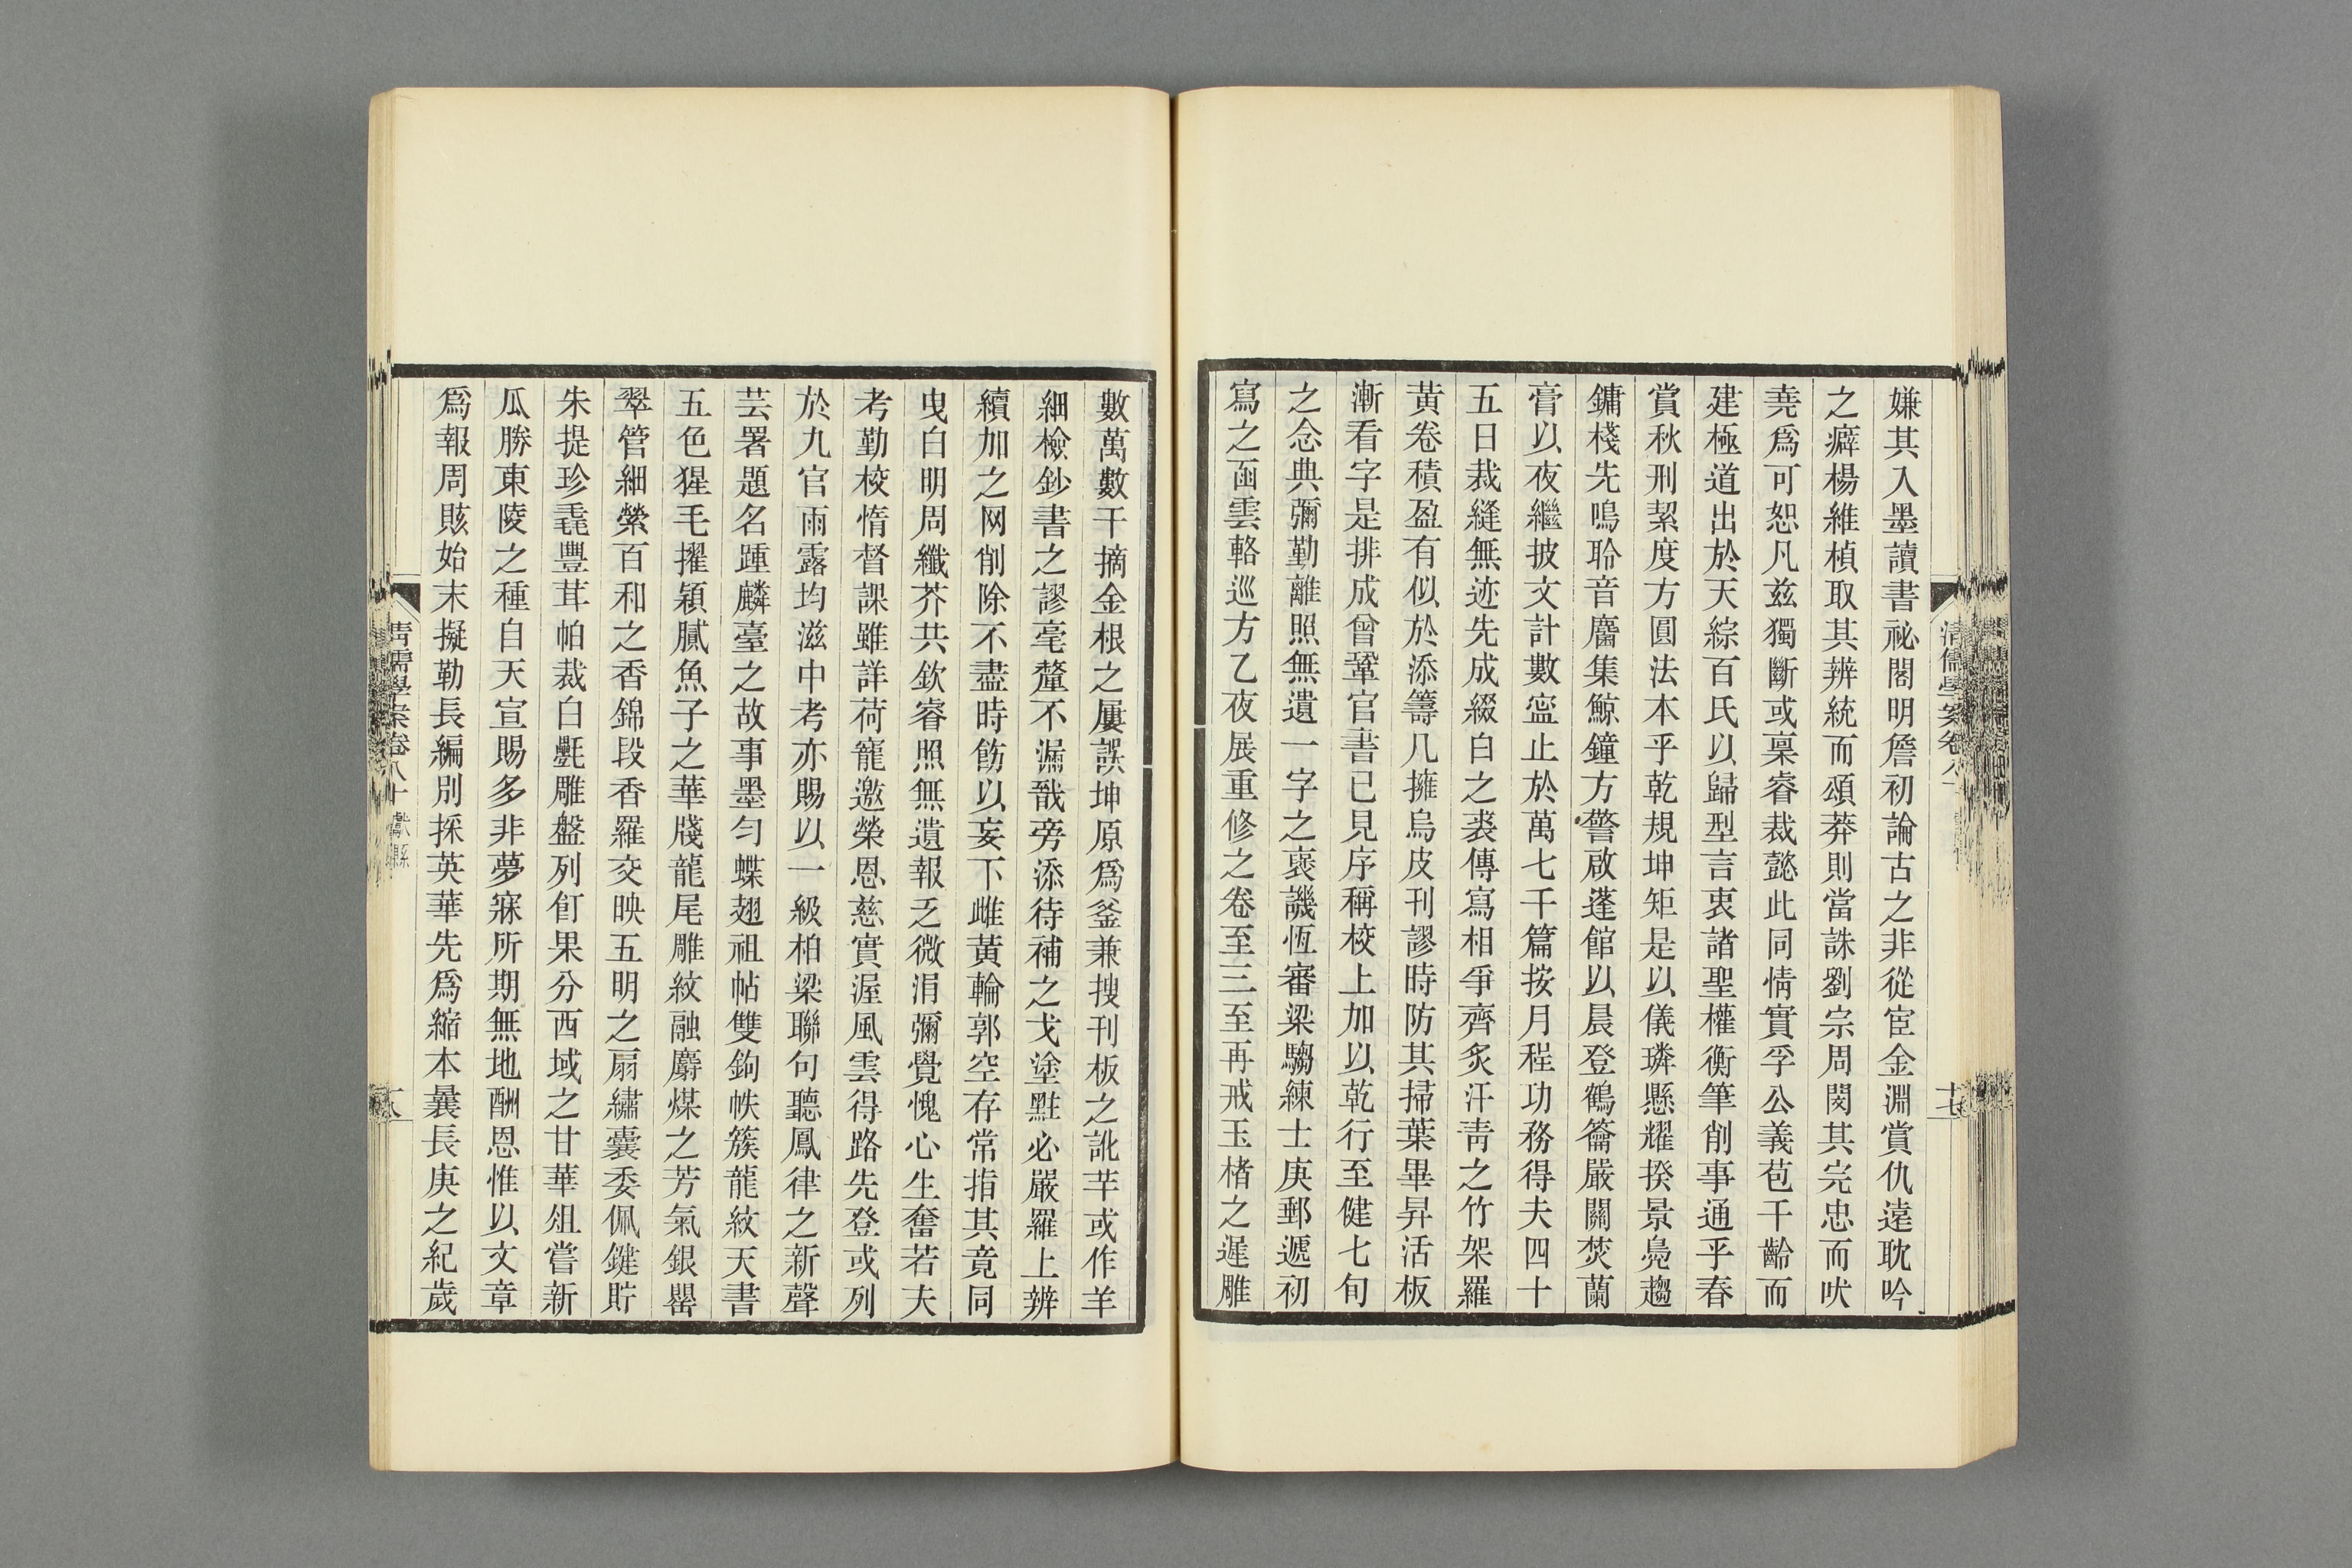 嫌其入墨讀書祕閣明詹初論古之非從宦金淵賞仇遠耽吟
之癖楊維楨取其辨統而頌莽則當誅劉宗周閔其完忠而吠
堯爲可恕凡兹獨斷或稟睿裁懿此同情實孚公義苞千齡而
建極道出於天綜百氏以歸型言衷諸聖權衡筆削事通乎春
賞秋刑絜度方圓法本乎乾規坤矩是以儀璘懸耀揆景鳧趨
鏞棧先鳴聆音麕集鯨鐘方警啟蓬館以晨登鶴籥嚴關焚蘭
膏以夜繼披文計數寍止於萬七千篇按月程功務得夫四十
五日裁縫無迹先成綴白之裘傳寫相爭齊炙汗靑之竹架羅
黃卷積盈有似於添籌几擁烏皮刊謬時防其掃葉畢昇活板
漸看字是排成曾鞏官書已見序稱校上加以乾行至健七旬
之念典彌勤離照無遺一字之褒譏恆審梁騶練士庚郵遞初
寫之函雲輅巡方乙夜展重修之卷至三至再戒玉楮之遲雕
數萬數千摘金根之屢誤坤原爲釜兼搜刊板之訛芉或作羊
細檢鈔書之謬毫釐不漏戠旁添待補之戈塗黈必嚴羅上辨
續加之网削除不盡時飭以妄下雌黃輪郭空存常指其竟同
曳白明周纖芥共欽睿照無遺報乏微涓彌覺愧心生奮若夫
考勤校惰督課雖詳荷寵邀榮恩慈實渥風雲得路先登或列
於九官雨露均滋中考亦賜以一級柏梁聯句聽鳳律之新聲
芸署題名踵麟臺之故事墨勻蝶翅祖帖雙鉤帙簇龍紋天書
五色猩毛擢穎膩魚子之華牋龍尾雕紋融麝煤之芳氣銀罌
翠管細縈百和之香錦段香羅交映五明之扇繡囊委佩鍵貯
朱提珍毳豐茸帕裁白氎雕盤列飣果分西域之甘華俎嘗新
瓜勝東陵之種自天宣賜多非夢寐所期無地酬恩惟以文章
爲報周賅始末擬勒長編別採英華先爲縮本曩長庚之紀歲
清儒學案卷八十 獻縣
十七